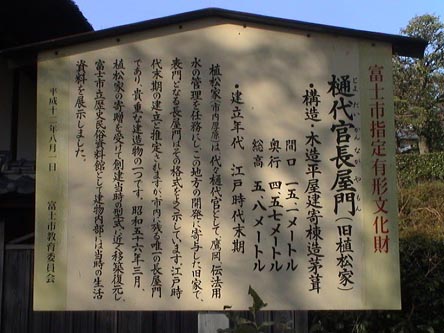 富士市指定有形文化財
樋代官長屋門(旧植松家)
・構造・木造平屋建寄棟造(茅葺)
間口 一五.一メートル
奥行 四.五七メートル
総高 五.八メートル
・建立年代 江戸時代末期
植松家(市内厚原)は代々樋代官として、鷹岡、伝法用
水の管理を任務とし、この地方の開発に寄与した旧家で、
表門となる長屋門はその格式をよく示しています。江戸時
代末期の建立と推定されますが、市内に残る唯一の長屋門
であり、貴重な建造物の一つです。昭和五十六年三月、
植松家の寄贈を受け、創建当時の型式に近く移築復元し、
富士市立歴史民俗資料館として建物内部には当時の生活
資料を展示しました。
平成十二年八月一日
富士市教育委員会